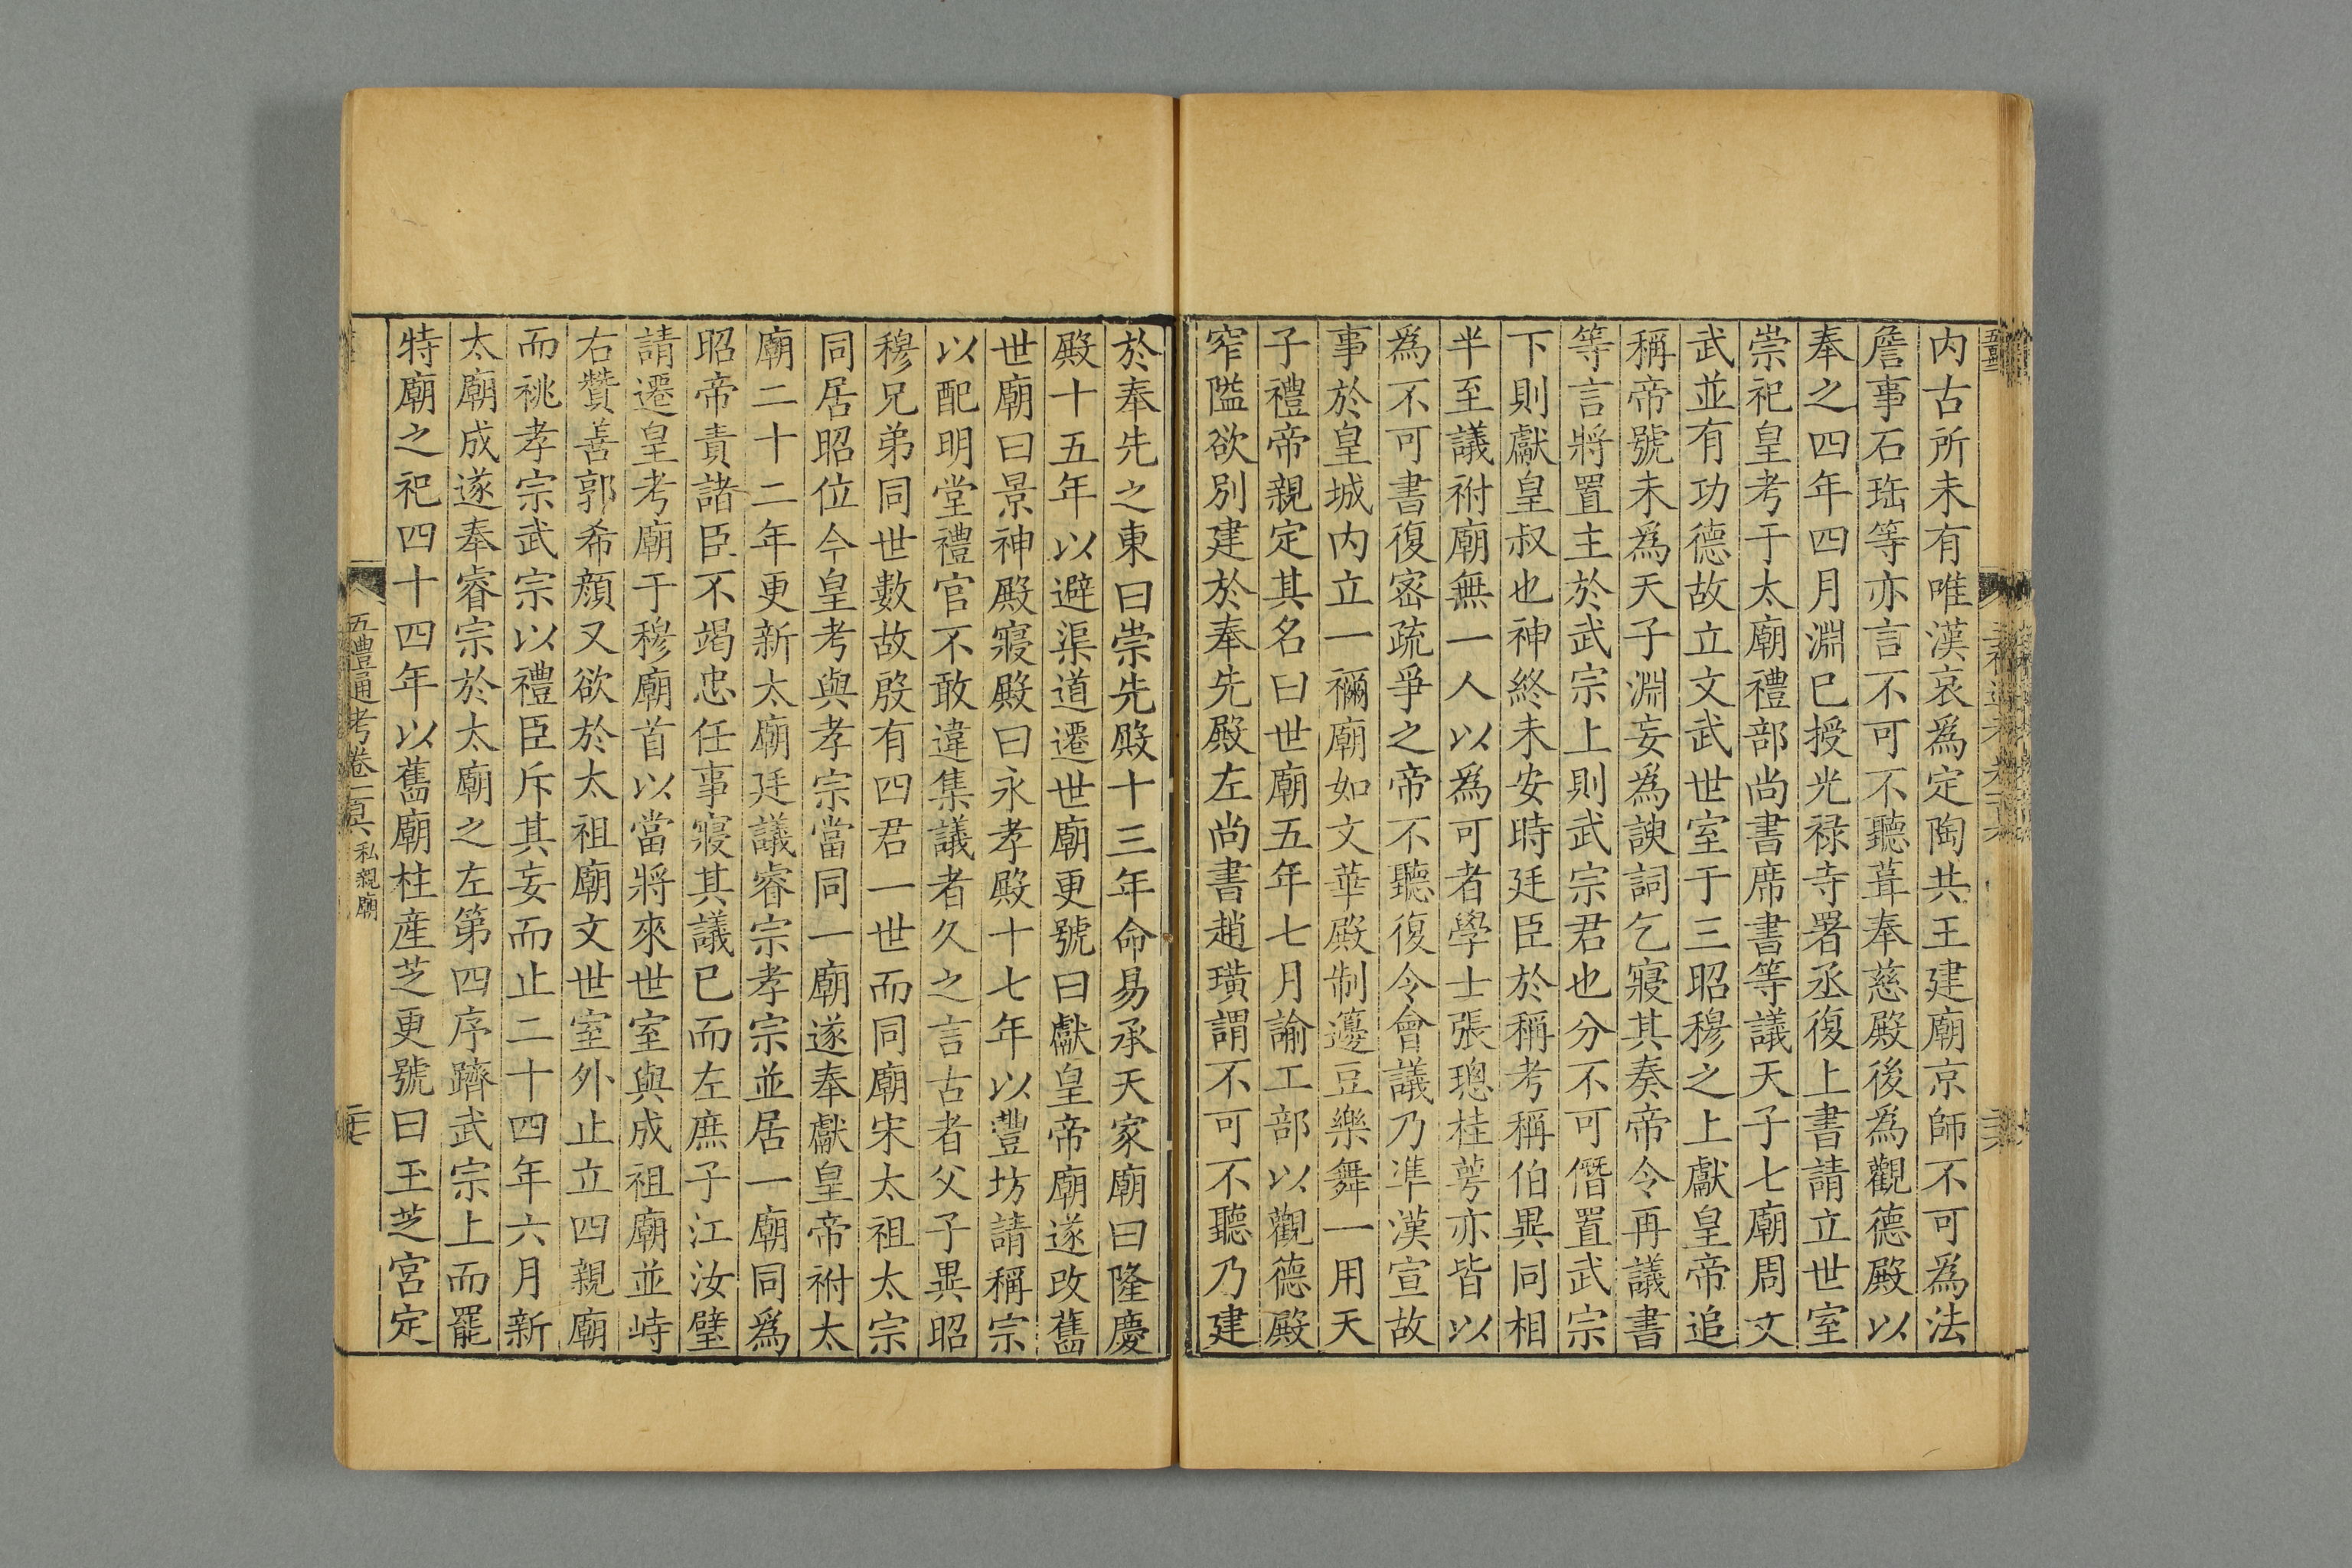 内古所未有唯漢哀爲定陶共王建廟京師不可爲法
詹事石珤等亦言不可不聽葺奉慈殿後爲觀德殿以
奉之四年四月淵已授光禄寺署丞復上書請立世室
崇祀皇考于太廟禮部尚書席書等議天子七廟周文
武並有功德故立文武世室于三昭穆之上獻皇帝追
稱帝號未爲天子淵妄爲諛詞乞寢其奏帝令再議書
等言將置主於武宗上則武宗君也分不可僭置武宗
下則獻皇叔也神終未安時廷臣於稱考稱伯異同相
半至議祔廟無一人以爲可者學士張璁桂萼亦皆以
爲不可書復密疏爭之帝不聽復令會議乃準漢宣故
事於皇城内立一禰廟如文華殿制籩豆樂舞一用天
子禮帝親定其名曰世廟五年七月諭工部以觀德殿
窄隘欲別建於奉先殿左尚書趙璜謂不可不聽乃建
於奉先之東曰崇先殿十三年命易承天家廟曰隆慶
殿十五年以避渠道遷世廟更號曰獻皇帝廟遂改舊
世廟曰景神殿寢殿曰永孝殿十七年以豐坊請稱宗
以配明堂禮官不敢違集議者久之言古者父子異昭
穆兄弟同世數故殷有四君一世而同廟宋太祖太宗
同居昭位今皇考與孝宗當同一廟遂奉獻皇帝祔太
廟二十二年更新太廟廷議睿宗孝宗並居一廟同爲
昭帝責諸臣不竭忠任事寢其議已而左庶子江汝璧
請遷皇考廟于穆廟首以當將來世室與成祖廟並峙
右贊善郭希顔又欲於太祖廟文世室外止立四親廟
而祧孝宗武宗以禮臣斥其妄而止二十四年六月新
太廟成遂奉睿宗於太廟之左第四序躋武宗上而罷
特廟之祀四十四年以舊廟柱産芝更號曰玉芝宮定
五禮通考卷一百 私親廟